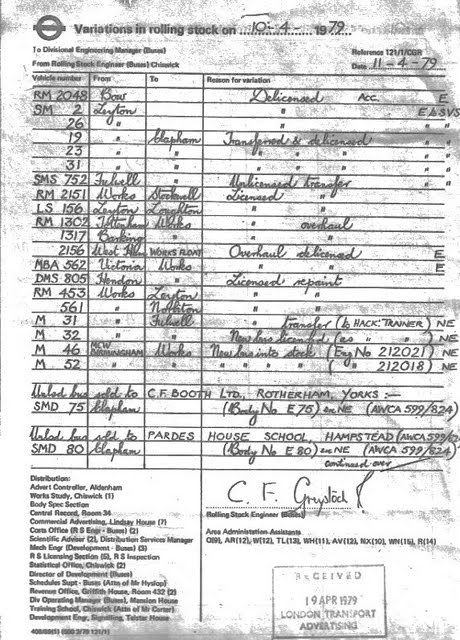 Variations in rolling stock on 10-4- 1979
To Divisional Engineering Manager (Buses)
Reference 121/T/CGR
From Rolling Stock Engineer (Buses) Chiswick
Date 11-4-79
Vehicle number From To Reason for variation
RM 2048 Bow Delicensed Acc. E
SM 2 Leyton " E & SVS
26 " " " "
19 " Clapham Transferred & delicensed " "
23 " " " " " "
31 " " " " " "
SMS 752 Fulwell " Unlicensed transfer
RM 2151 Works Stockwell Licensed "
LS 156 Leyton Loughton " "
RM 1302 Tottenham Works " overhaul
1317 Barking " " "
2156 West Ham WORKS FLOAT Overhaul delicensed E
MBA 562 Victoria Works " " E
DMS 805 Hendon " Licensed repaint
RM 453 Works Leyton " "
561 " Norbiton " "
M 31 " Fulwell " transfer (to HACK: TRAINER) NE
M 32 " " New bus licensed (as " " ) NE
M 46 MCW BIRMINGHAM Works New bus into stock (Eng No 212021) NE
M 52 " " " " " " ( " " 212018) NE
Unlsd bus sold to C.F. BOOTH LTD., ROTHERHAM, YORKS :-
SMD 75 Clapham (Body No E 75) ex NE (AWCA 599/824)
Unlsd bus sold to PARDES HOUSE SCHOOL, HAMPSTEAD (AWCA 599/
SMD 80 Clapham (Body No E 80) ex NE (AWCA 599/824)
continued over
Distribution:
Advert Controller, Aldenham
Works Study, Chiswick (1)
Body Spec Section
Central Record, Room 34
Commercial Advertising, Lindsay House (7)
Costs Office (R S Engr - Buses) (2)
Scientific Adviser (2), Distribution Services Manager
Mech Engr (Development - Buses) (3)
R & Licensing Section (5), R S Inspection
Statistical Office, Chiswick (2)
Director of Development (Buses)
Schedules Supt - Buses (Attn of Mr Hyslop)
Revenue Office, Griffith House, Room 432 (2)
Div Operating Manager (Buses), Mansion House
Training School, Chiswick (Attn of Mr Carter)
Development Eng, Signalling, Telstar House
C. F. Greystock
Rolling Stock Engineer (Buses)
Area Administration Assistants
Q(9), AR(12), W(12), TL(13), WH(11), AV(12), NX(10), WN(15), R(14)
RECEIVED
19 APR 1979
LONDON TRANSPORT
ADVERTISING